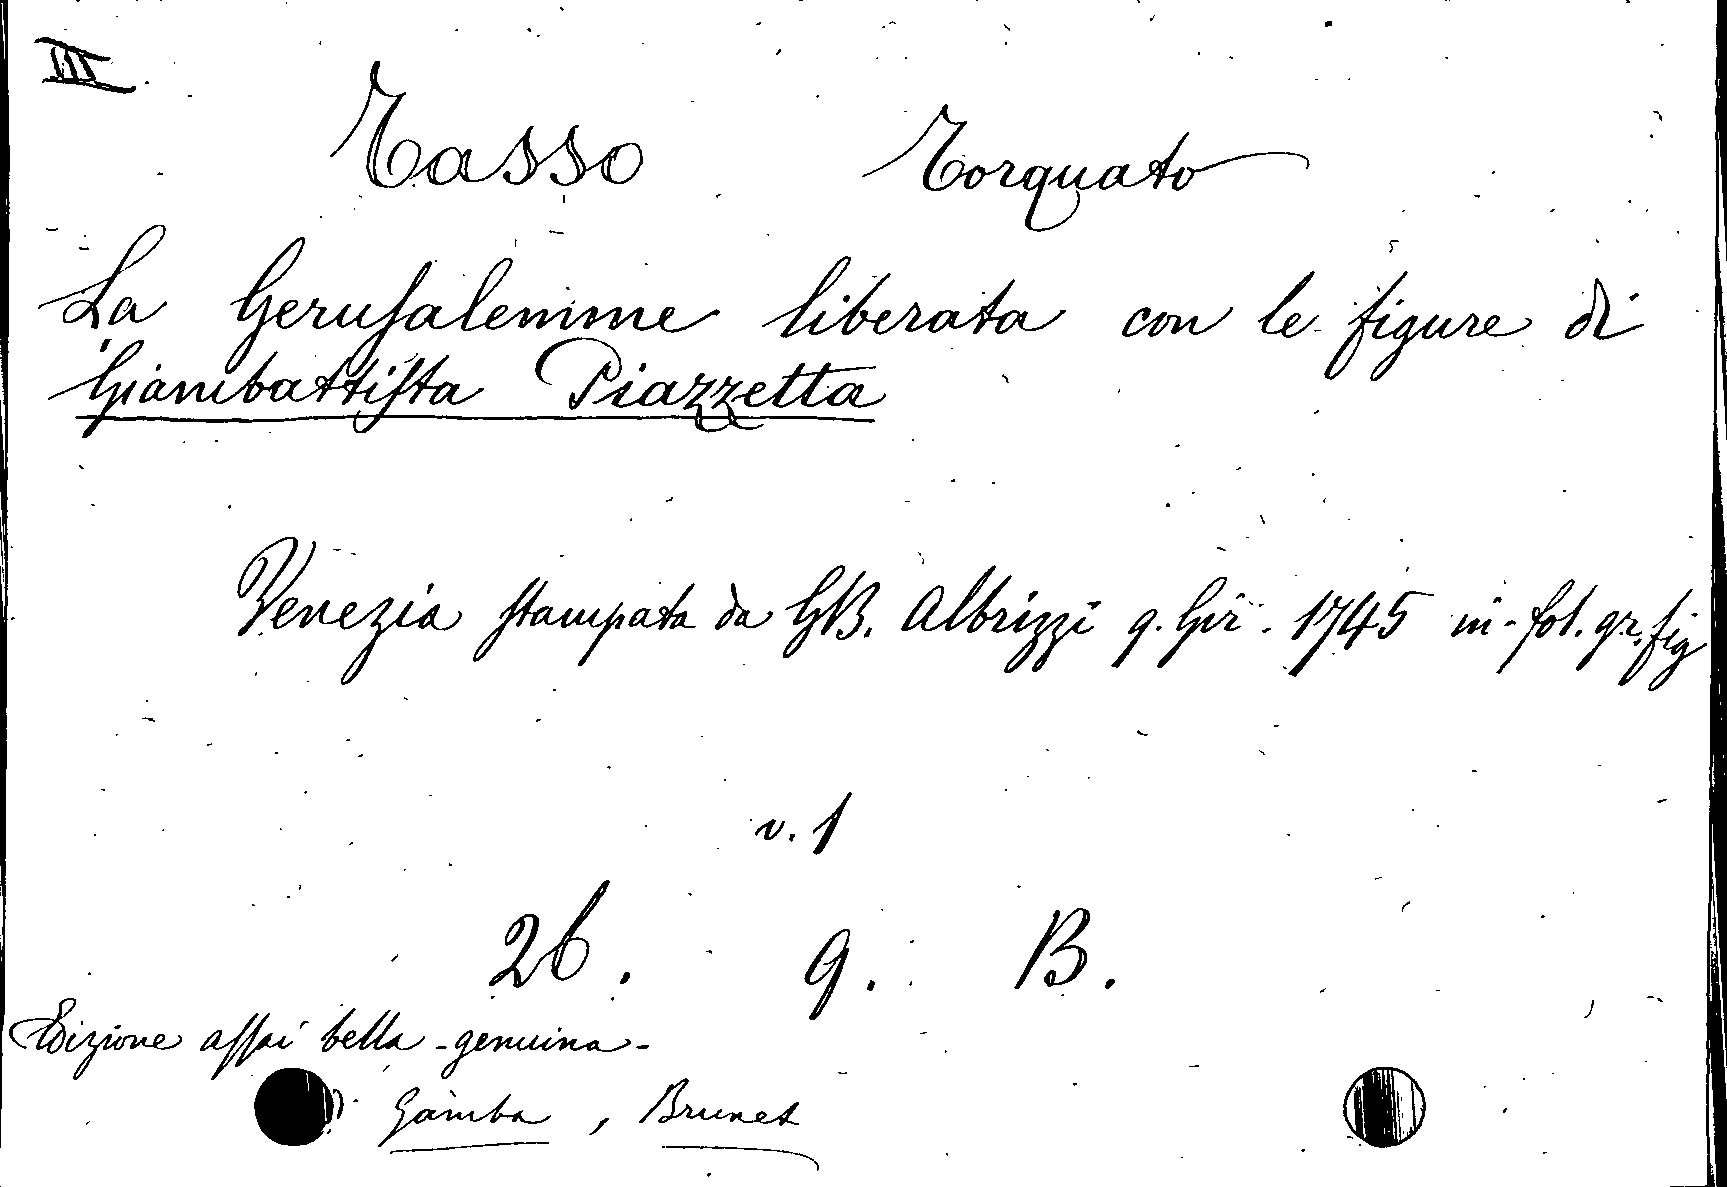 III
Tasso Torquato
La Gerusalemme liberata con le figure di
Giambattista Piazzetta
Venezia stampata da GB. Albrizzi q. Gir. 1745 in-fol. gr. fig
v. 1
26. 9. B.
Edizione assai bella - genuina -
Gamba, Brunet